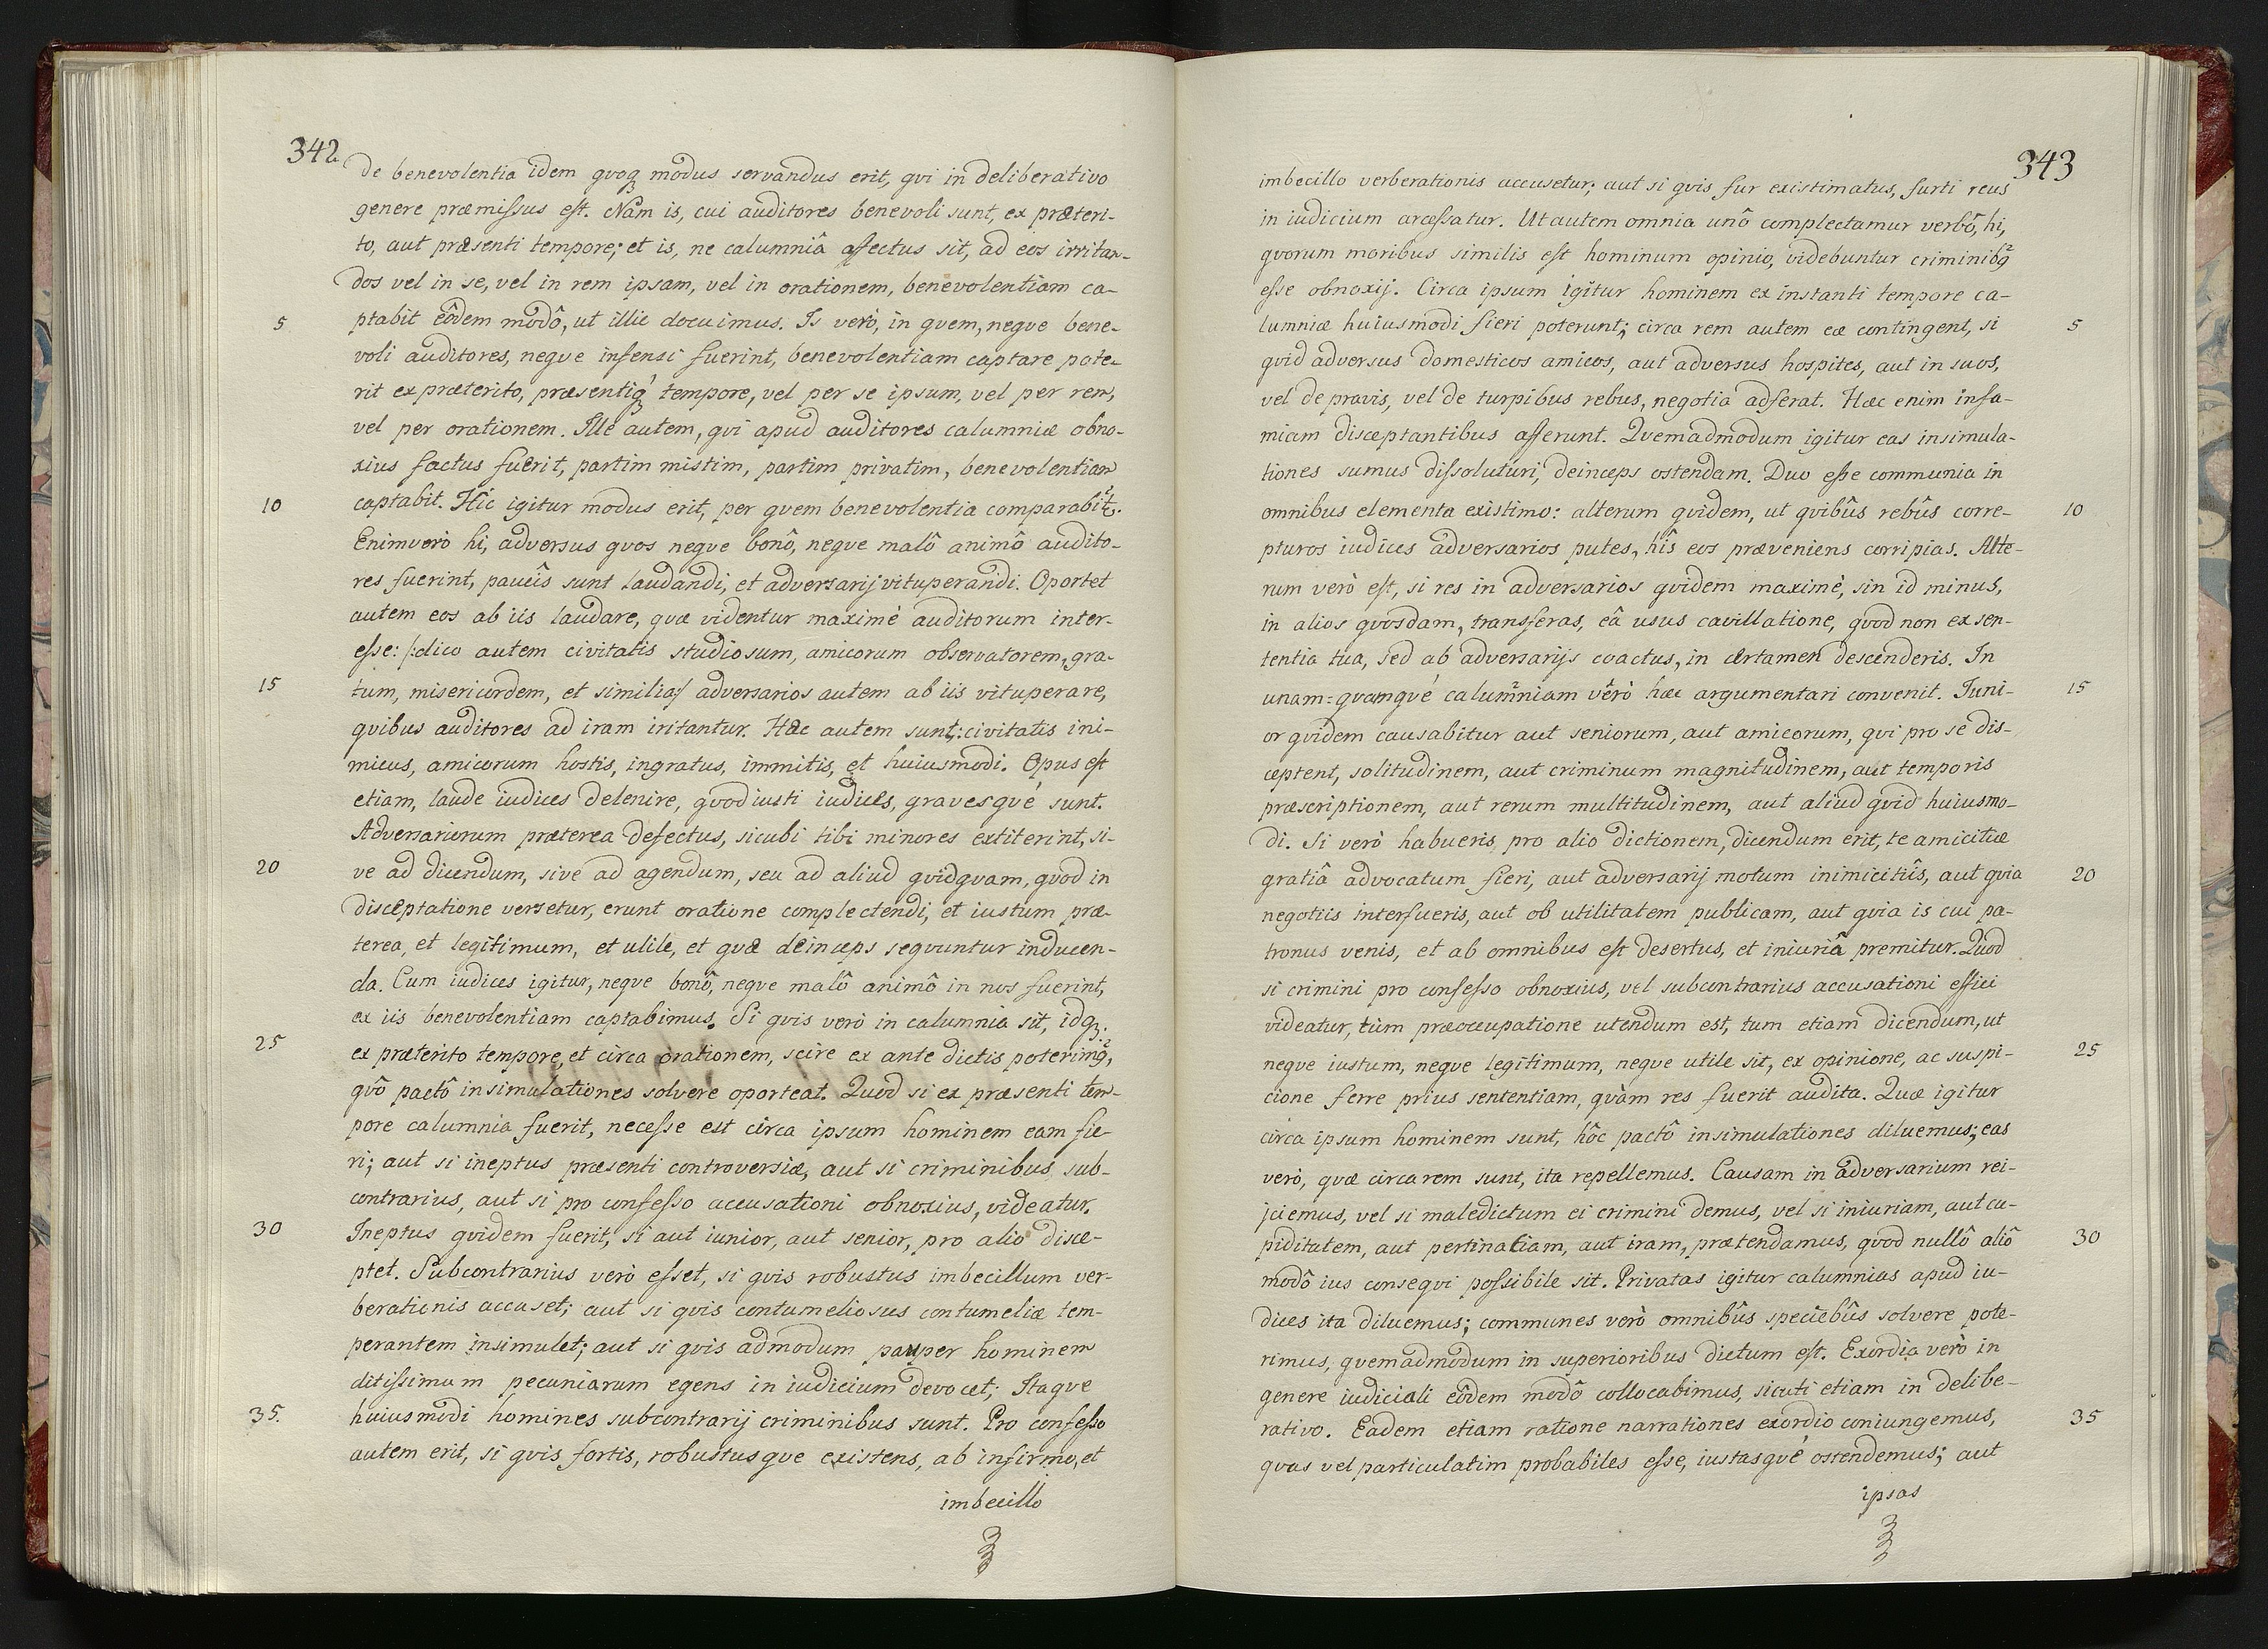 342
De benevolentia idem qvoqꝫ modus servandus erit, qvi in deliberativo
genere præmissus est. Nam is, cui auditores benevoli sunt, ex præteri-
to, aut præsenti tempore; et is, ne calumniâ affectus sit, ad eos irritan-
dos vel in se, vel in rem ipsam, vel in orationem, benevolentiam ca-
5 ptabit eôdem modô, ut illic docuimus. Is verò, in qvem, neqve bene-
voli auditores, neqve infensi fuerint, benevolentiam captare pote-
rit ex præterito, præsentiqꝫ tempore, vel per se ipsum, vel per rem,
vel per orationem. Ille autem, qvi apud auditores calumniæ obno-
xius factus fuerit, partim mistim, partim privatim, benevolentiam
10 captabit. Hic igitur modus erit, per qvem benevolentia comparabit̉.
Enimverò hi, adversus qvos neqve bonô, neqve malô animô audito-
res fuerint, paucîs sunt laudandi, et adversarij vituperandi. Oportet
autem eos ab iis laudare, qvæ videntur maximè auditorum inter-
esse: /:dico autem civitatis studiosum, amicorum observatorem, gra-
15 tum, misericordem, et similia:/ adversarios autem ab iis vituperare,
qvibus auditores ad iram iritantur. Hæc autem sunt: civitatis ini-
micus, amicorum hostis, ingratus, immitis, et huiusmodi. Opus est
etiam, laude iudices delenire, qvod iusti iudices, gravesqvé sunt.
Adversariorum præterea defectus, sicubi tibi minores extiterint, si-
20 ve ad dicendum, sive ad agendum, seu ad aliud qvidqvam, qvod in
disceptatione versetur, erunt oratione complectendi, et iustum præ-
terea, et legitimum, et utile, et qvæ deinceps seqvuntur inducen-
da. Cum iudices igitur, neqve bonô, neqve malô animô in nos fuerint,
ex iis benevolentiam captabimus. Si qvis verò in calumnia sit, idqꝫ.
25 ex præterito tempore, et circa orationem, scire ex ante dictis poterimꝰ,
qvô pactô insimulationes solvere oporteat. Quod si ex præsenti tem-
pore calumnia fuerit, necesse est circa ipsum hominem eam fie-
ri; aut si ineptus præsenti controversiæ, aut si criminibus sub-
contrarius, aut si pro confesso accusationi obnoxius, videatur.
30 Ineptus qvidem fuerit, si aut iunior, aut senior, pro alio disce-
ptet. Subcontrarius verò esset, si qvis robustus imbecillum ver-
berationis accuset; aut si qvis contumeliosus contumeliæ tem-
perantem insimulet; aut si qvis admodum pauper hominem
ditissimum pecuniarum egens in iudicium devocet; Itaqve
35. huiusmodi homines subcontrarij criminibus sunt. Pro confesso
autem erit, si qvis fortis, robustusqve existens, ab infirmo, et
imbecillo
343
imbecillo verberationis accusetur; aut si qvis fur existimatus, furti reus
in iudicium arcessatur. Ut autem omnia unô complectamur verbô, hi,
qvorum moribus similis est hominum opinio, videbuntur criminibꝰ
esse obnoxij. Circa ipsum igitur hominem ex instanti tempore ca-
lumniæ huiusmodi fieri poterunt; circa rem autem eæ contingent, si 5
qvid adversus domesticos amicos, aut adversus hospites, aut in suos,
vel de pravis, vel de turpibus rebus, negotia adferat. Hæc enim infa-
miam disceptantibus afferunt. Qvemadmodum igitur eas insimula-
tiones sumus dissoluturi, deinceps ostendam. Duo esse communia in
omnibus elementa existimo: alterum qvidem, ut qvibûs rebûs corre- 10
pturos iudices adversarios putes, hîs eos præveniens corripias. Alte-
rum verò est, si res in adversarios qvidem maximè, sin id minus,
in alios qvosdam, transferas, eâ usus cavillatione, qvod non ex sen-
tentia tua, sed ab adversarijs coactus, in certamen descenderis. In
unam=qvamqvé calumniam verò hæc argumentari convenit. Iuni- 15
or qvidem causabitur aut seniorum, aut amicorum, qvi pro se dis-
ceptent, solitudinem, aut criminum magnitudinem, aut temporis
præscriptionem, aut rerum multitudinem, aut aliud qvid huiusmo-
di. Si verò habueris pro alio dictionem, dicendum erit, te amicitiæ
gratiâ advocatum fieri, aut adversarij motum inimicitiîs, aut qvia 20
negotiis interfueris, aut ob utilitatem publicam, aut qvia is cui pa-
tronus venis, et ab omnibus est desertus, et iniuriâ premitur. Quod
si crimini pro confesso obnoxius, vel subcontrarius accusationi effici
videatur, tùm præoccupatione utendum est, tum etiam dicendum, ut
neqve iustum, neqve legitimum, neqve utile sit, ex opinione, ac suspi- 25
cione ferre prius sententiam, qvàm res fuerit audita. Quæ igitur
circa ipsum hominem sunt, hôc pactô insimulationes diluemus; eas
verò, qvæ circa rem sunt, ita repellemus. Causam in adversarium rei-
jciemus, vel si maledictum ei crimini demus, vel si iniuriam, aut cu-
piditatem, aut pertinatiam, aut iram, prætendamus, qvod nullô aliô 30
modô ius conseqvi possibile sit. Privatas igitur calumnias apud iu-
dices ita diluemus; communes verò omnibûs speciebûs solvere pote-
rimus, qvemadmodum in superioribus dictum est. Exordia verò in
genere iudiciali eôdem modô collocabimus, sicuti etiam in delibe-
rativo. Eadem etiam ratione narrationes exordio coniungemus, 35
qvas vel particulatim probabiles esse, iustasqvé ostendemus; aut
ipsas